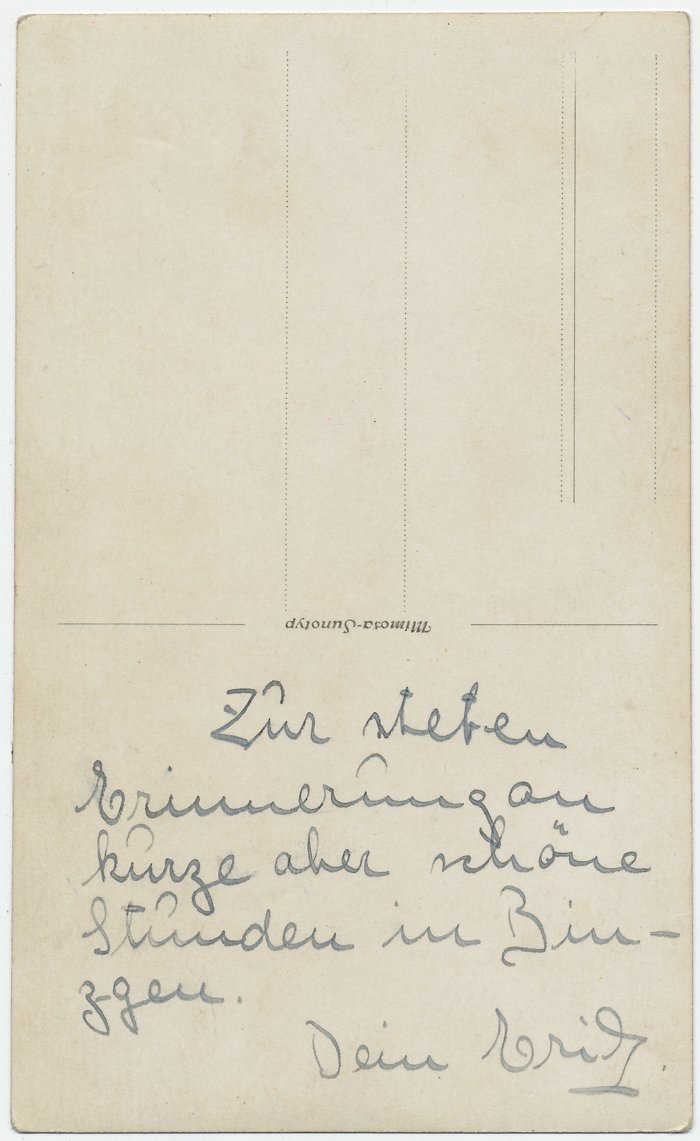 Mimosa-Sunotyp
Zur steten
Erinnerung an
kurze aber schöne
Stunden in Bin-
zgen.
Dein